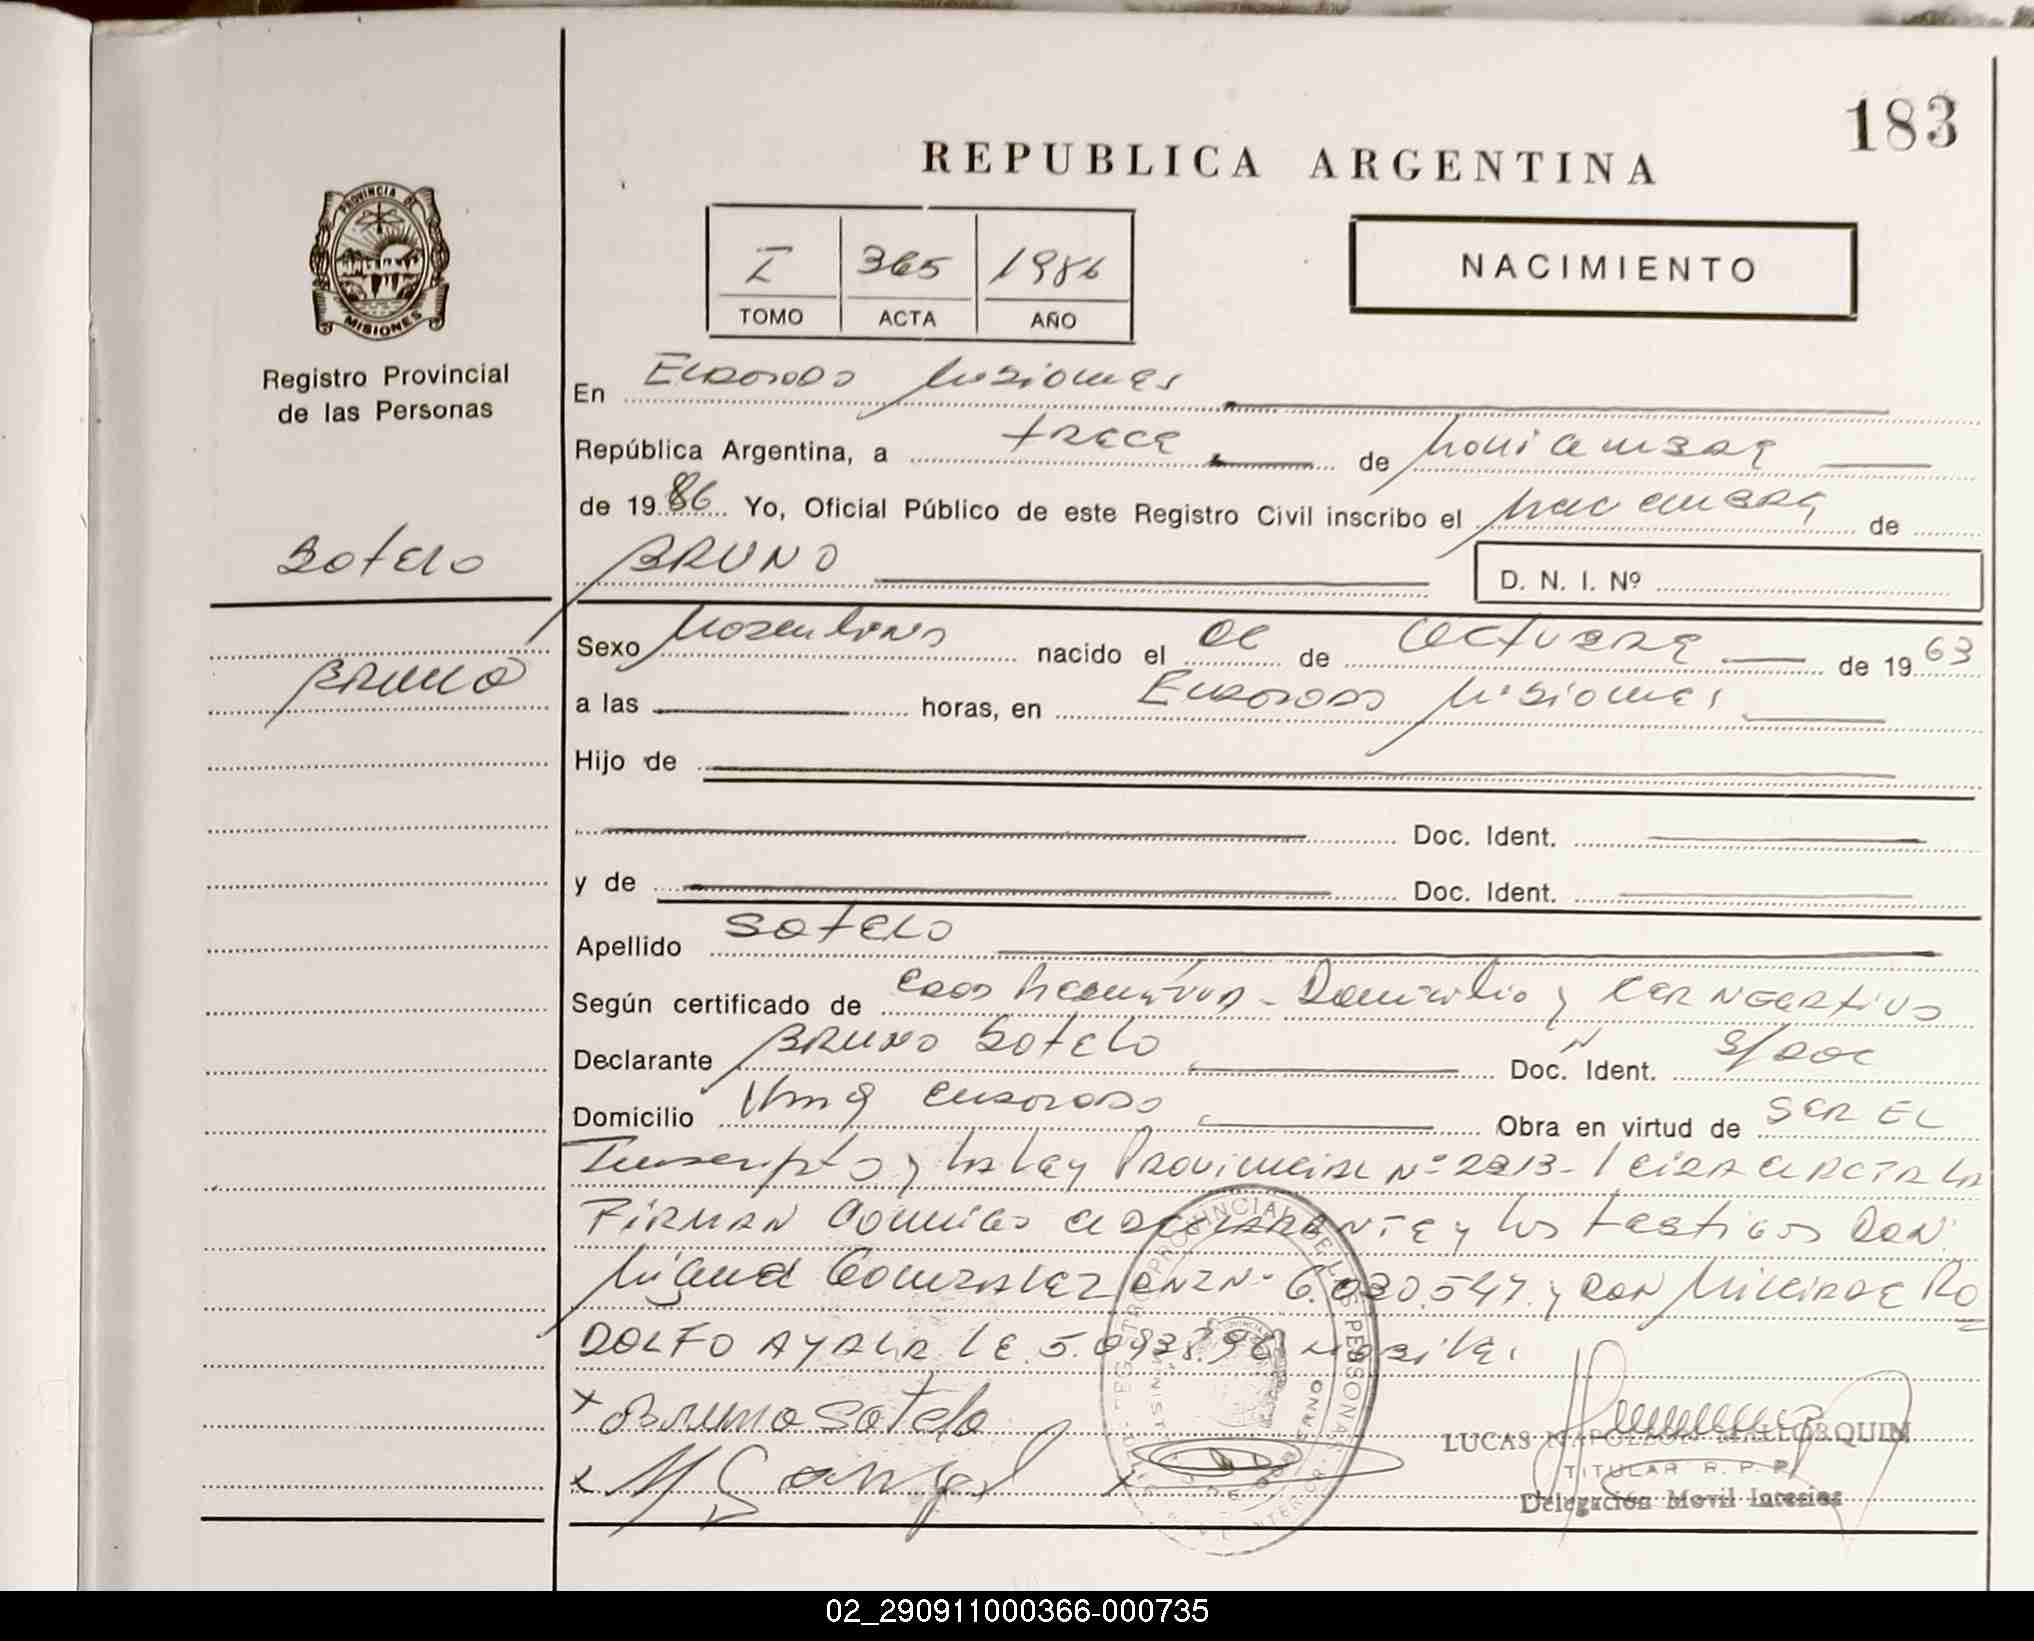 183
REPUBLICA ARGENTINA
PROVINCIA DE
MISIONES
I 365 1986
TOMO ACTA AÑO
NACIMIENTO
Registro Provincial
de las Personas
En Eldorado Misiones
República Argentina, a trece de noviembre
de 1986 Yo, Oficial Público de este Registro Civil inscribo el nacimiento de
Sotelo
BRUNO
D. N. I. Nº
Bruno
Sexo Masculino nacido el 06 de Octubre de 1963
a las horas, en Eldorado Misiones
Hijo de
Doc. Ident.
y de Doc. Ident.
Apellido Sotelo
Según certificado de Domicilio y Cer Negativo
Declarante BRUNO Sotelo Doc. Ident. S/Doc
Domicilio Eldorado Obra en virtud de SER EL
Inscripto y la Ley Provincial Nº 2213- Leida el Acta La
FIRMAN Conmigo el declarante y los testigos Don
Miguel Gonzalez DNI Nº 6.030.547 y Don Milciade RO
DOLFO AYALA LE 5.093.896
x Bruno Sotelo
x M Gonzal
x
REG. PROVINCIAL DE LAS PERSONAS
LUCAS NAPOLEON MALLORQUIN
TITULAR R. P. P.
Delegación Movil Interior
02_290911000366-000735